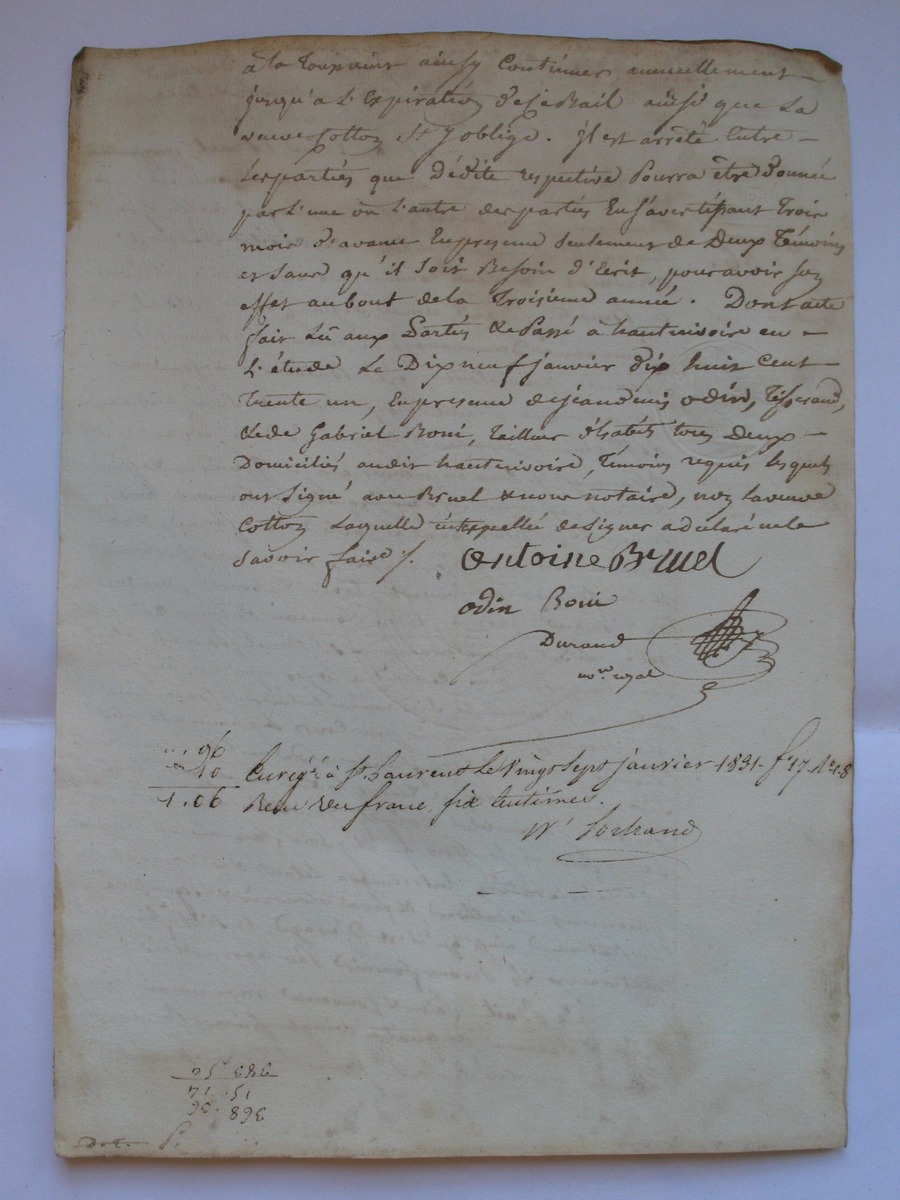 à la Toussaint ainsy Continuer annuellement
jusqu'a L'Expiration de Ce Bail aussi que La
veuve Cottoz S'y oblige. il est arrêté Entre
Les parties que Dédite respective Pourra être donnée
par L'une ou L'autre des parties En s'avertissant trois
mois d'avance En presence seulement de Deux Témoins
et sans qu'il soit Besoin d'Ecrit, pour avoir son
effet au bout de la Troisieme année. Dont acte
fait Lû aux Parties & Passé à hauterivoire en
L'étude Le Dix neuf janvier dix huit cent
trente un, En presence de jean denis odin, Tisserand,
& de Gabriel Boni, tailleur d'habits tous deux
Domiciliés audit hauterivoire, Témoins requis lesquels
ont signé avec Bruel & nous notaire, non la veuve
Cottoz Laquelle interpellée de signer a declaré ne le
savoir faire /.
Antoine Bruel
odin Boni
Durand
nore royal
96
10
1.06
Enregré à St. Laurent Le Vingt Sept janvier 1831 fo 17
Reçu un franc six centimes.
383 50
15. 14
398 36